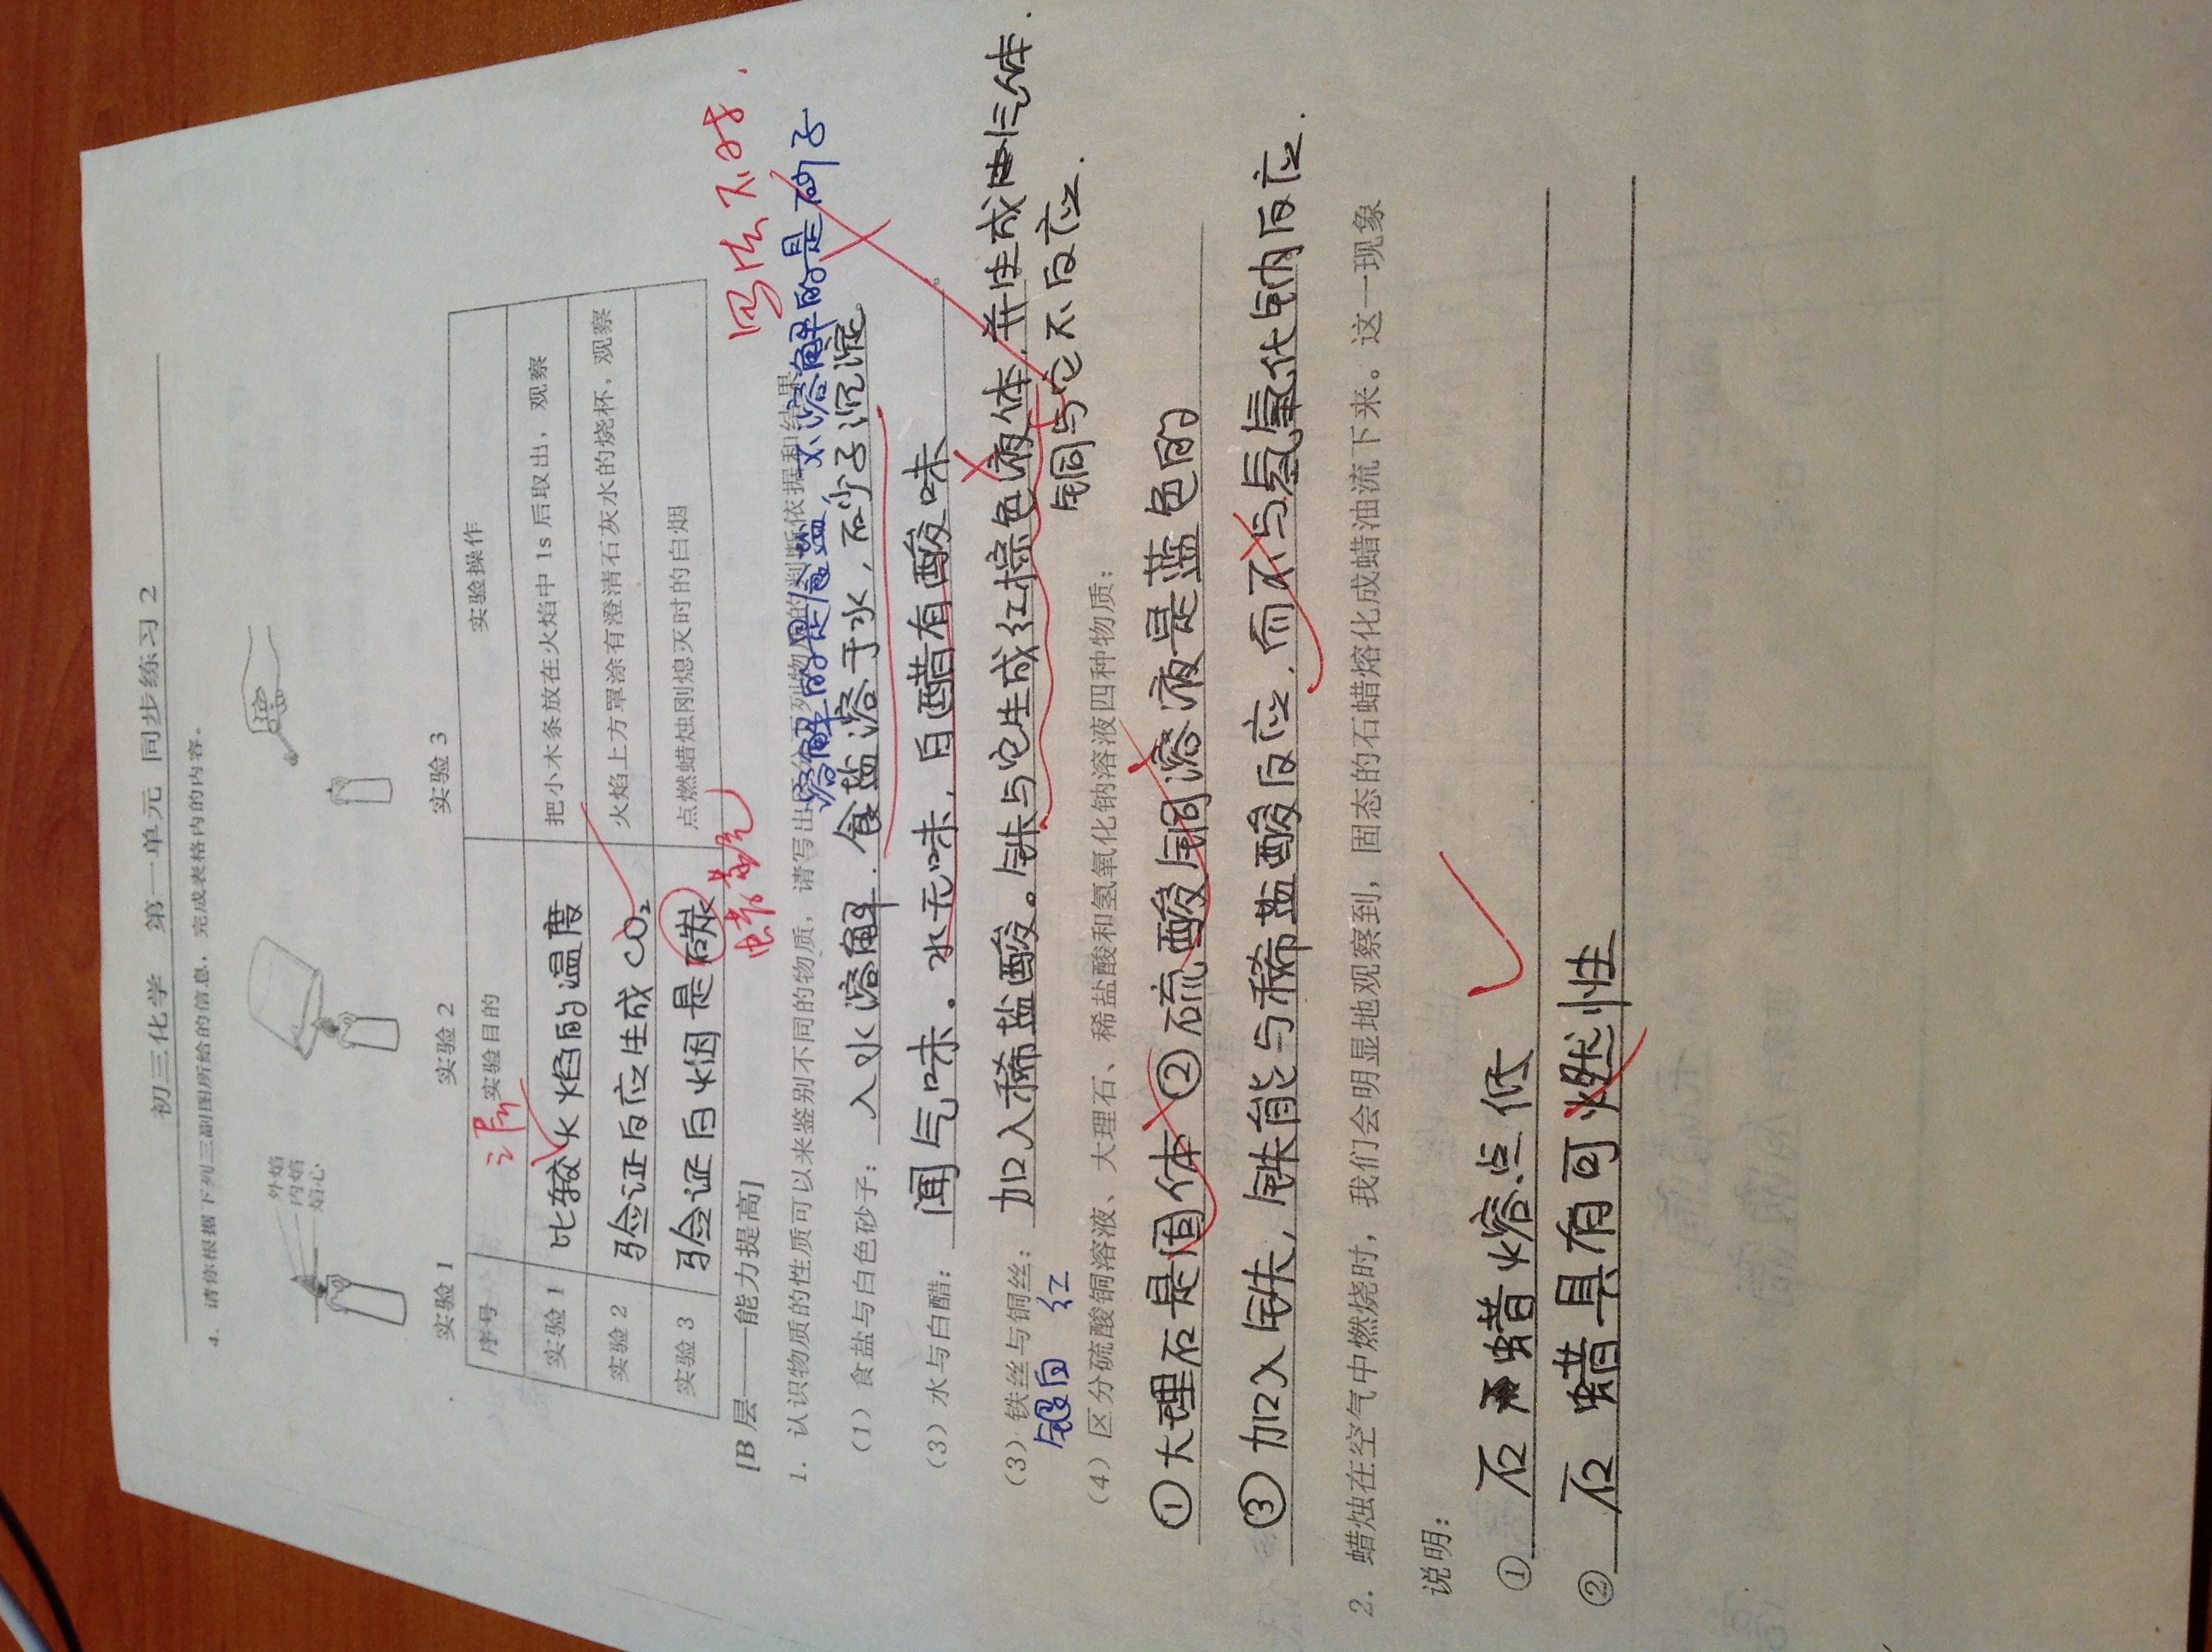 初三化学 第一单元 同步练习2
4. 请你根据下列三副图所给的信息，完成表格内的内容。
外焰
内焰
焰心
实验1 实验2 实验3
序号 实验目的 实验操作
三层
实验1 比较火焰的温度 把小木条放在火焰中1s后取出，观察
实验2 验证反应生成CO₂ 火焰上方罩涂有澄清石灰水的烧杯，观察
实验3 验证白烟是碳 点燃蜡烛刚熄灭时的白烟
蜡蒸气
[B层——能力提高]
写法不对.
1. 认识物质的性质可以来鉴别不同的物质，请写出区分下列物质的判断依据和结果
溶解的是食盐，不溶解的是砂子
（1）食盐与白色砂子：入水溶解.食盐溶于水，砂子沉淀
（3）水与白醋：闻气味。水无味，白醋有酸味。
（3）铁丝与铜丝：加入稀盐酸。铁与它生成红棕色液体.并生成气体.
银白 红 铜与它不反应.
（4）区分硫酸铜溶液、大理石、稀盐酸和氢氧化钠溶液四种物质：
①大理石是固体 ②硫酸铜溶液是蓝色的
③加入铁，铁能与稀盐酸反应.而不与氢氧化钠反应.
2. 蜡烛在空气中燃烧时，我们会明显地观察到，固态的石蜡熔化成蜡油流下来。这一现象
说明：
① 石蜡熔点低
② 石蜡具有可燃性